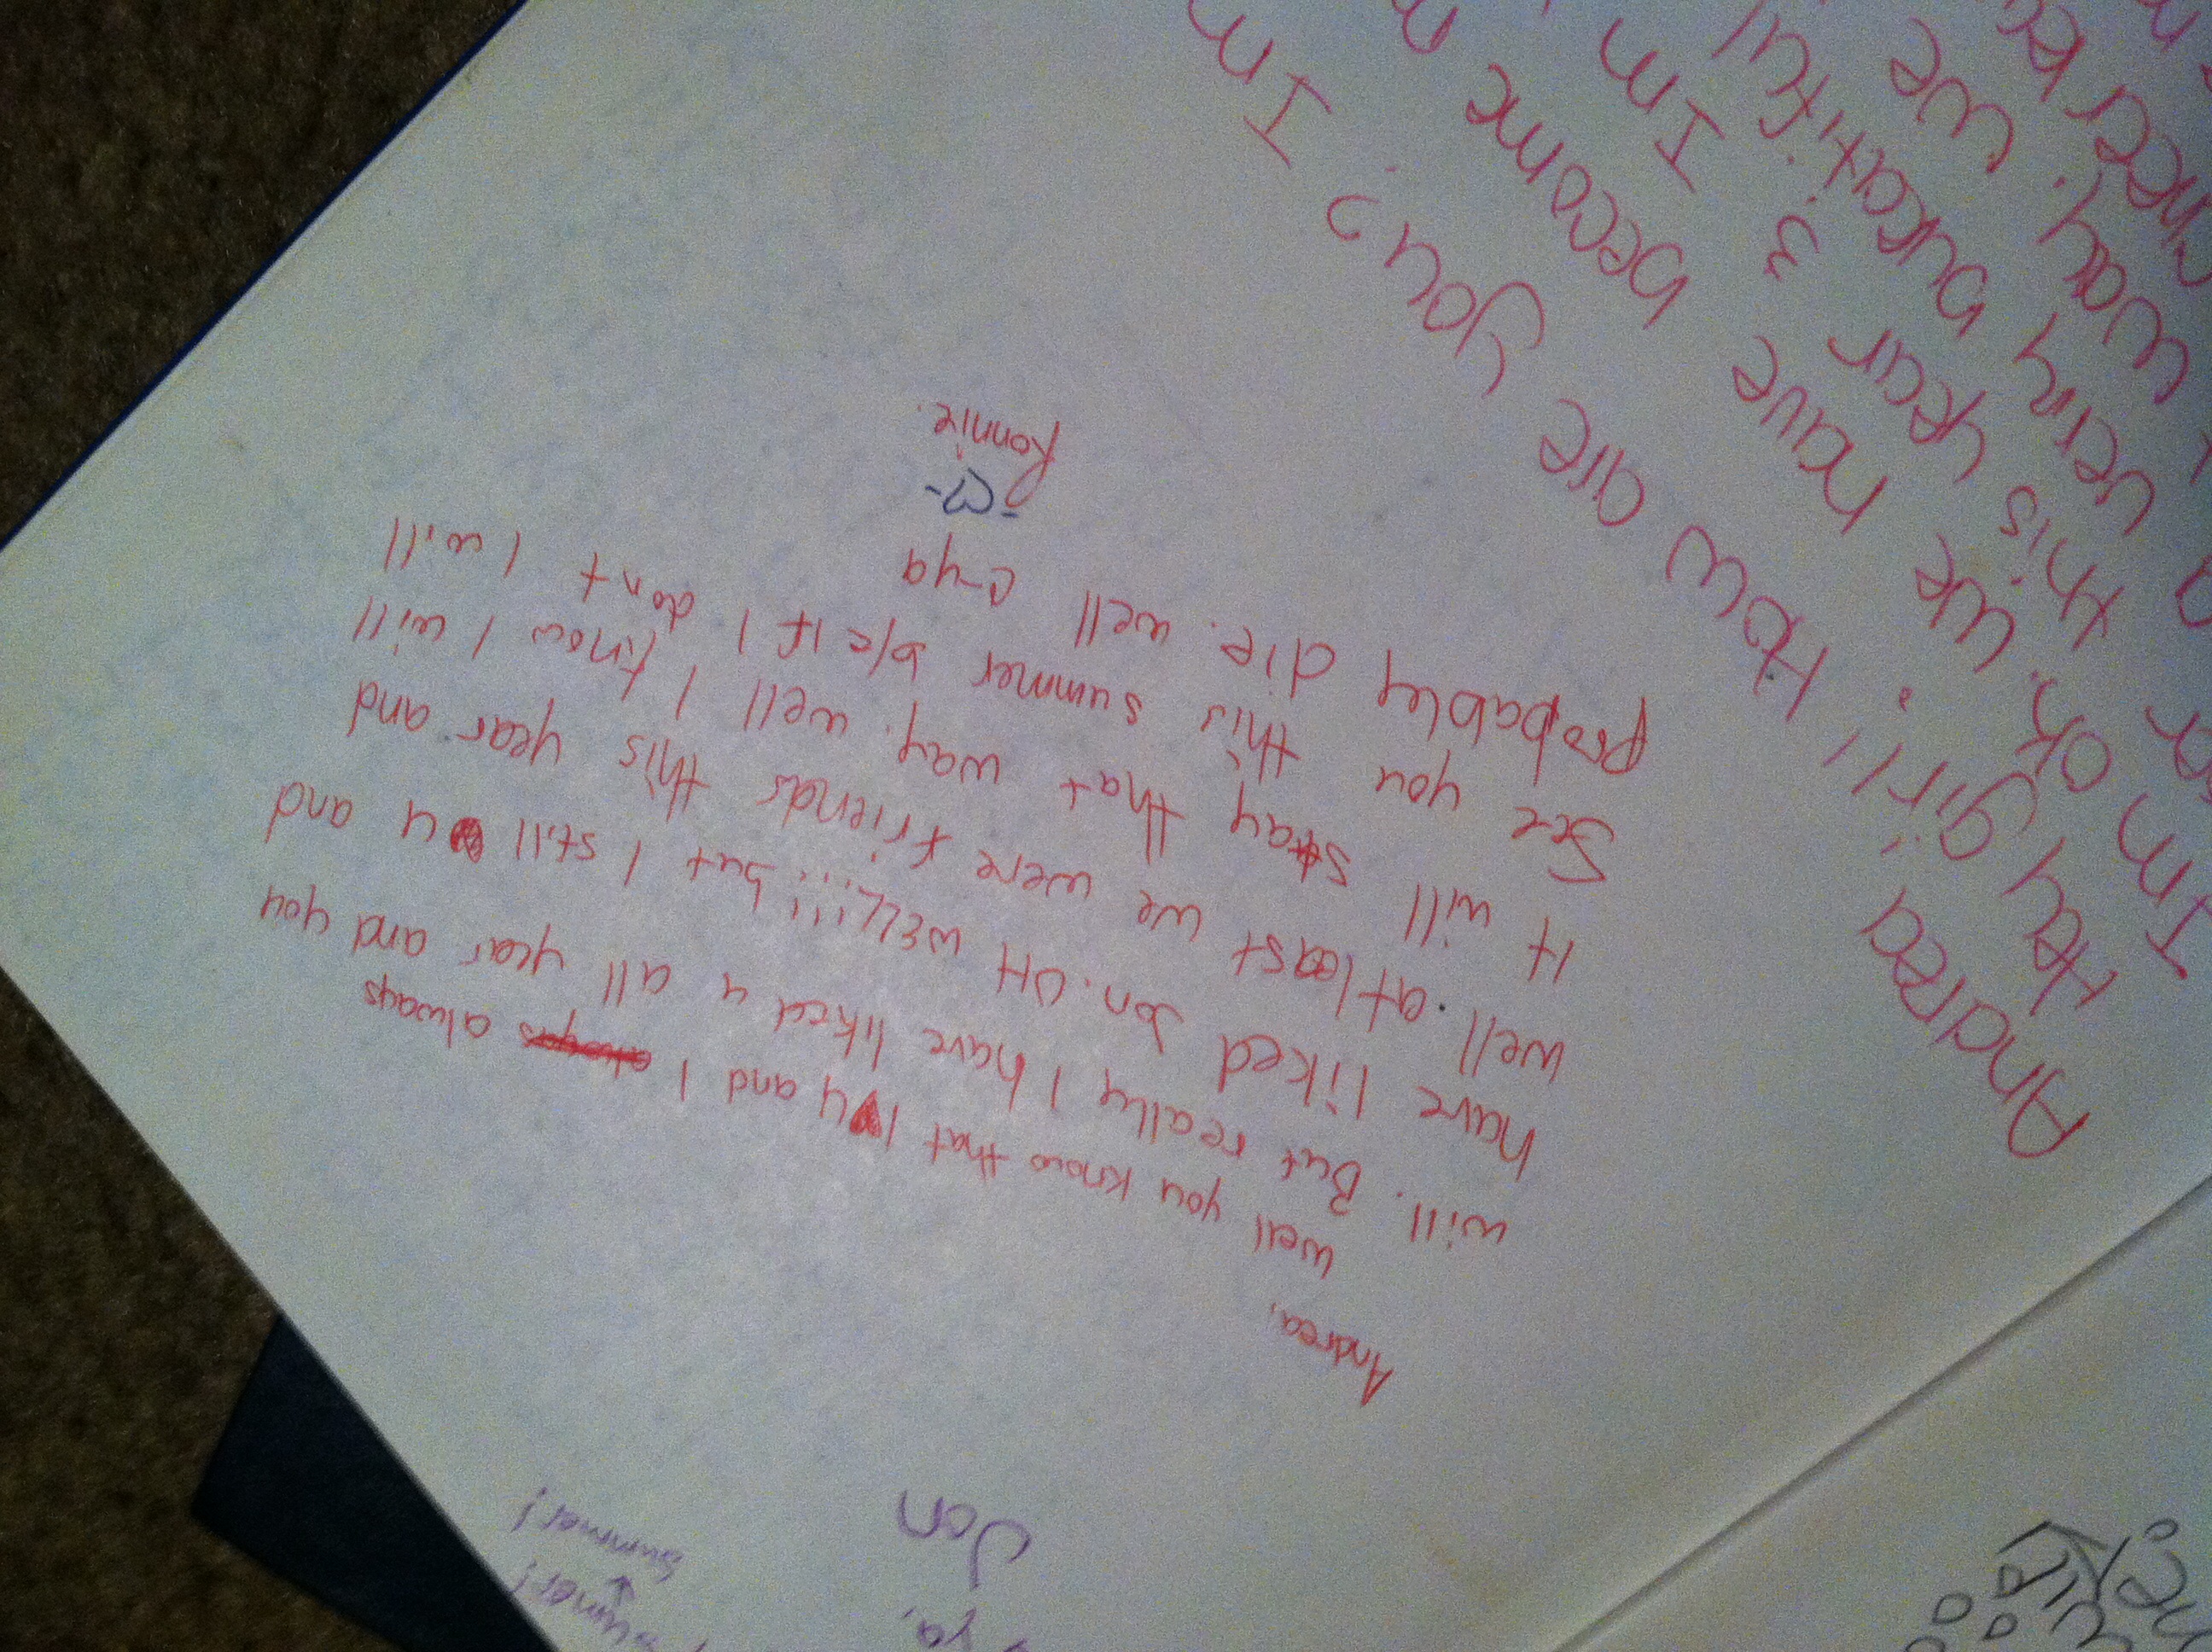 ya,
Jon
summer!
Andrea,
well you know that I ♥ u and I always always
will. But really I have liked u all year and you
have liked Jon. OH WELL!!! but I still ♥ u and
well. atleast we were friends this year and
It will stay that way. well I know I will
See you this summer b/c If I dont I will
probabley die. well c-ya
Ronnie.
Andrea
Hey girl! How are you? Im
Im ok. We have become
this year & Im
very bueatiful
way. We